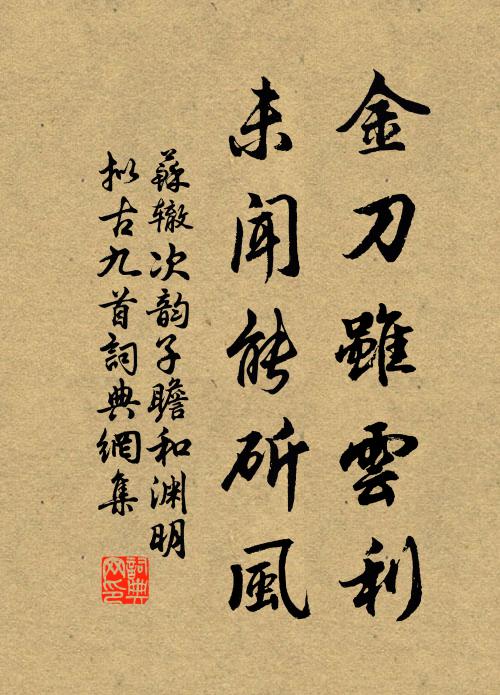 金刀雖雲利
未聞能斫風
蘇辙次韵子瞻和渊明
拟古九首詞典網集
詞典
网印